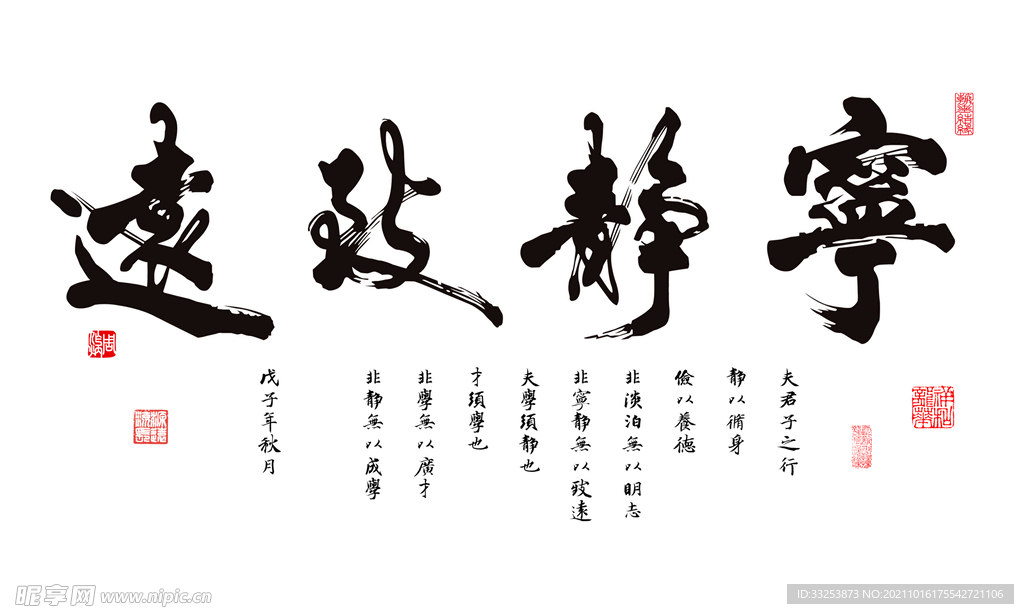 寧靜致遠
夫君子之行
靜以脩身
儉以養德
非淡泊無以明志
非寧靜無以致遠
夫學須靜也
才須學也
非學無以廣才
非靜無以成學
戊子年秋月
昵享网 www.nipic.cn
ID:33253873 NO:20211016175542721106